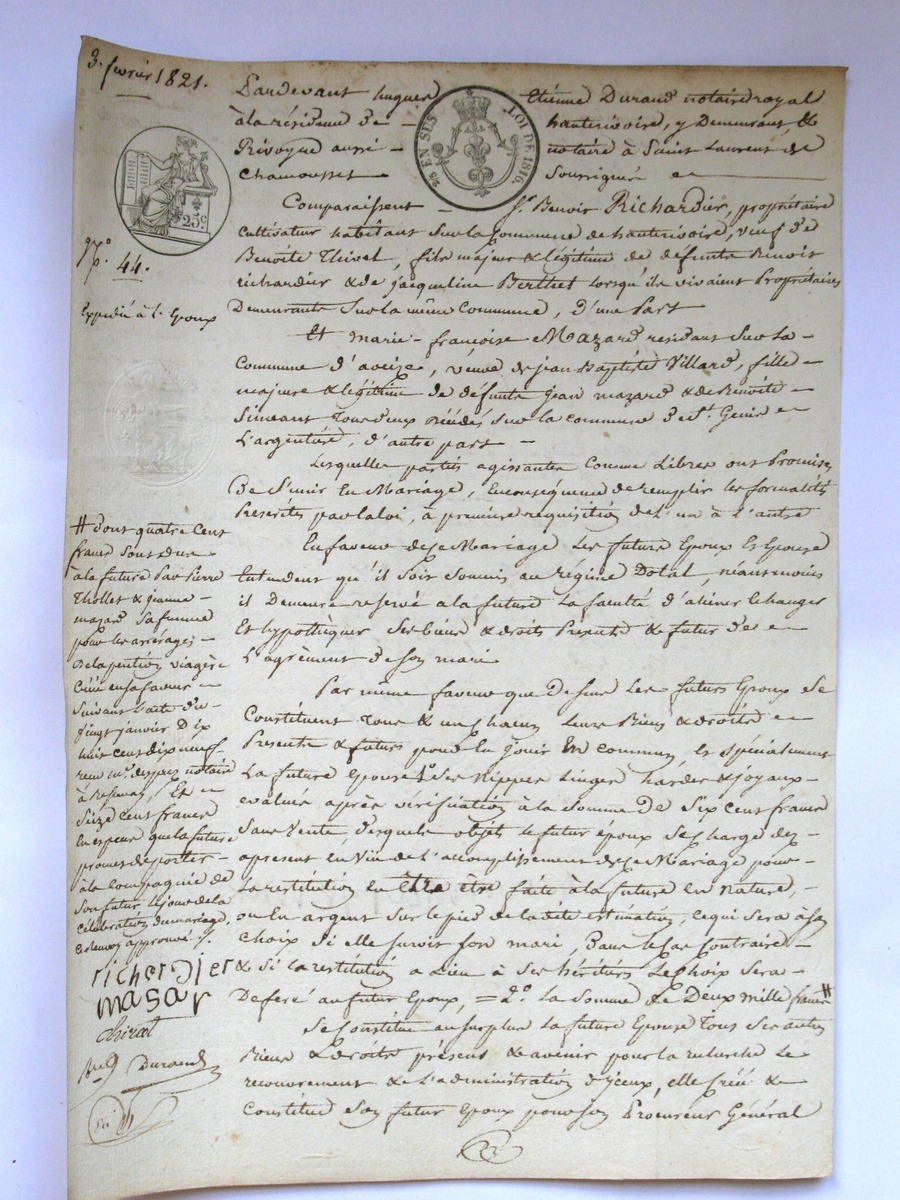 3. fevrier 1821.
Pardevant hugues Etienne Durand notaire royal
à la résidence de hauterivoire, y Demeurant, &
Rivoyre aussi notaire à Saint Laurent de
Chamousset Soussignés
2/8 EN SUS LOI DE 1816.
25c
Comparaissent Sr. Benoit Richardier, propriétaire
cultivateur habitant Sur la Commune de hauterivoire, veuf de
Benoite Thivel, fils majeur & légitime de défunts Benoit
richardier & de jacqueline Berthet lorsqu'ils vivaient Propriétaires
Demeurants Sur la même Commune, D'une Part
N.o 44.
Expédié à l'Epoux
Et marie-françoise Mazard residant Sur la
Commune d'aveize, veuve de jean Baptiste Villard, fille
majeure & légitime de défunts jean mazard & de Benoite
Simeant Tous deux décédés Sur la commune de St. Genis
L'argentière, d'autre part
Lesquelles parties agissantes Comme Libres ont Promises
De S'unir En Mariage, En conséquence de remplir les formalités
Prescrites par la loi, à première requisition de l'un à l'autre
En faveur de Ce Mariage Les futurs Epoux
Entendent qu'il Soit Soumis au régime Dotal, néanmoins
il Demeure reservé a la future La faculté d'aliéner Echanger
Et hypothéquer Ses biens & droits Présents & futurs de
L'agrément de Son mari
Par même faveur que Dessus Les futurs Epoux Se
Constituent Tous & un chacun Leurs Biens & droits
Présents & futurs pour En jouir En commun, Et Spécialement
La future Epouse 1.o Ses nippes Linges hardes & joyaux
évalués après vérification à la Somme De Six Cent francs
Sans Vente desquels objets le futur époux Se Charge dez
apresent En Vue de L'accomplissement de Ce Mariage pour
La restitution En être être faite à la future En nature,
ou En argent Sur le pied de la dite estimation, Ce qui Sera à Son
choix Si elle Survit Son mari, Dans le Cas Contraire
& Si la restitution a Lieu à Ses héritiers Le Choix Sera
Déferé au futur Epoux, = 2.o La Somme de Deux mille francs #
Se Constitue au Surplus La future Epouse Tous Ses autres
Biens & droits présents & avenir pour la recherche Le
recouvrement & L'administration d'iceux, elle Créé &
Constitue Son futur Epoux pour Son Procureur Général
# dont quatre Cent
francs Sont dus
à la future Par Pierre
Thollet & jeanne
mazard Sa femme
pour les arrérages
De la pention viagère
Créée en Sa faveur
Suivant l'acte du
Vingt janvier Dix
huit cent dix neuf
reçu Me. notaire
à Et
Seize Cent francs
En espèces que la future
promet de porter
à la Compagnie de
Son futur Le jour de la
Célébration du mariage,
ce renvoi approuvé /.
richerdier
masar
Durand